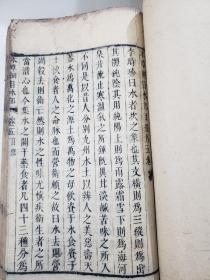 李時珍曰水者坎之象也其文橫則爲三縱則爲川
其體純陰其用純陽上則爲雨露霜雪下則爲海河
泉井流止寒溫氣之所鍾既異甘淡鹹苦味之所入
不同是以昔人分別九州水土以辨人之美惡壽夭
蓋水爲萬化之源土爲萬物之母飲資于水食資于
土飲食者人之命脉也而營衛賴之故曰水去則營
竭穀去則衛亡然則水之性味尤慎疾衛生者之所
當潛心也今集水之關于藥食者凡四十三種分爲
本草綱目水部